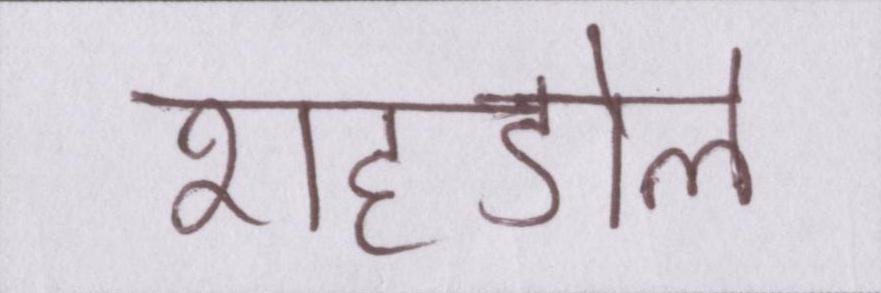 शहडोल